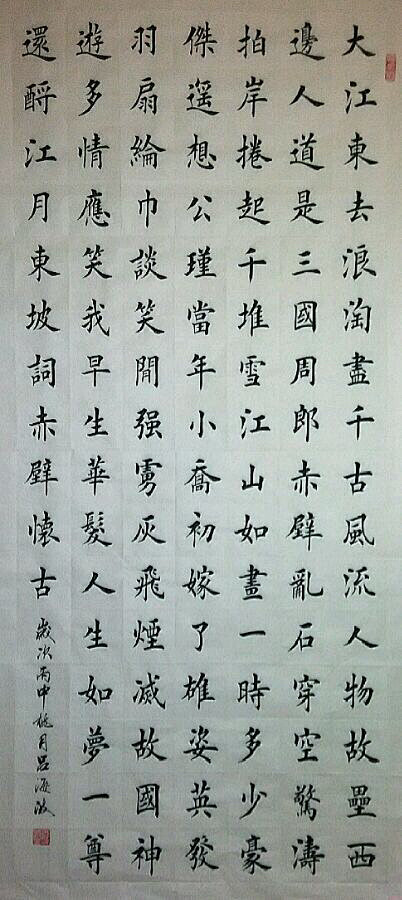 大江東去浪淘盡千古風流人物故壘西
邊人道是三國周郎赤壁亂石穿空驚濤
拍岸捲起千堆雪江山如畫一時多少豪
傑遥想公瑾當年小喬初嫁了雄姿英發
羽扇綸巾談笑間强虜灰飛煙滅故國神
遊多情應笑我早生華髮人生如夢一尊
還酹江月東坡詞赤壁懷古
歲次丙申桃月呂海